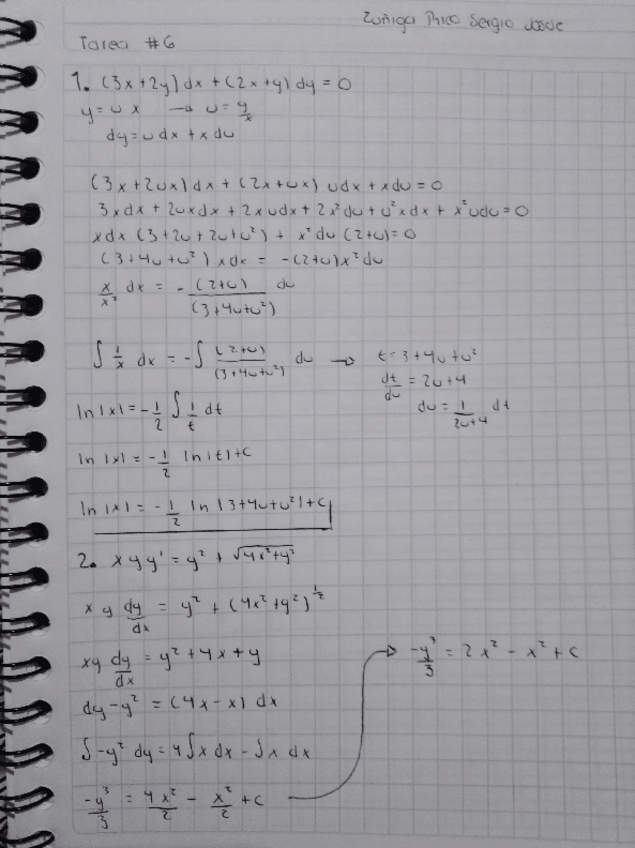 Zuñiga Rico Sergio
Tarea #6
1. (3x+2y)dx+(2x+y)dy=0
y=ux → u=y/x
dy=udx+xdu
(3x+2ux)dx+(2x+ux) udx+xdu=0
3xdx+2uxdx+2xudx+2x²du+u²xdx+x²udu=0
xdx(3+2u+2u+u²)+x²du(2+u)=0
(3+4u+u²)xdx=-(2+u)x²du
x/x² dx = -(2+u)/(3+4u+u²) du
∫ 1/x dx = -∫ (2+u)/(3+4u+u²) du → t=3+4u+u²
dt/du = 2u+4
du = 1/(2u+4) dt
ln|x|=-1/2 ∫ 1/t dt
ln|x| = -1/2 ln|t|+c
ln|x| = -1/2 ln|3+4u+u²|+c
2. xyy'=y²+√(4x²+y²)
xy dy/dx = y²+(4x²+y²)^(1/2)
xy dy/dx = y²+4x+y
dy-y² = (4x-x)dx
∫-y² dy=4∫x dx-∫x dx
-y³/3 = 4x²/2 - x²/2 +c
→ -y³/3 = 2x²-x²+c